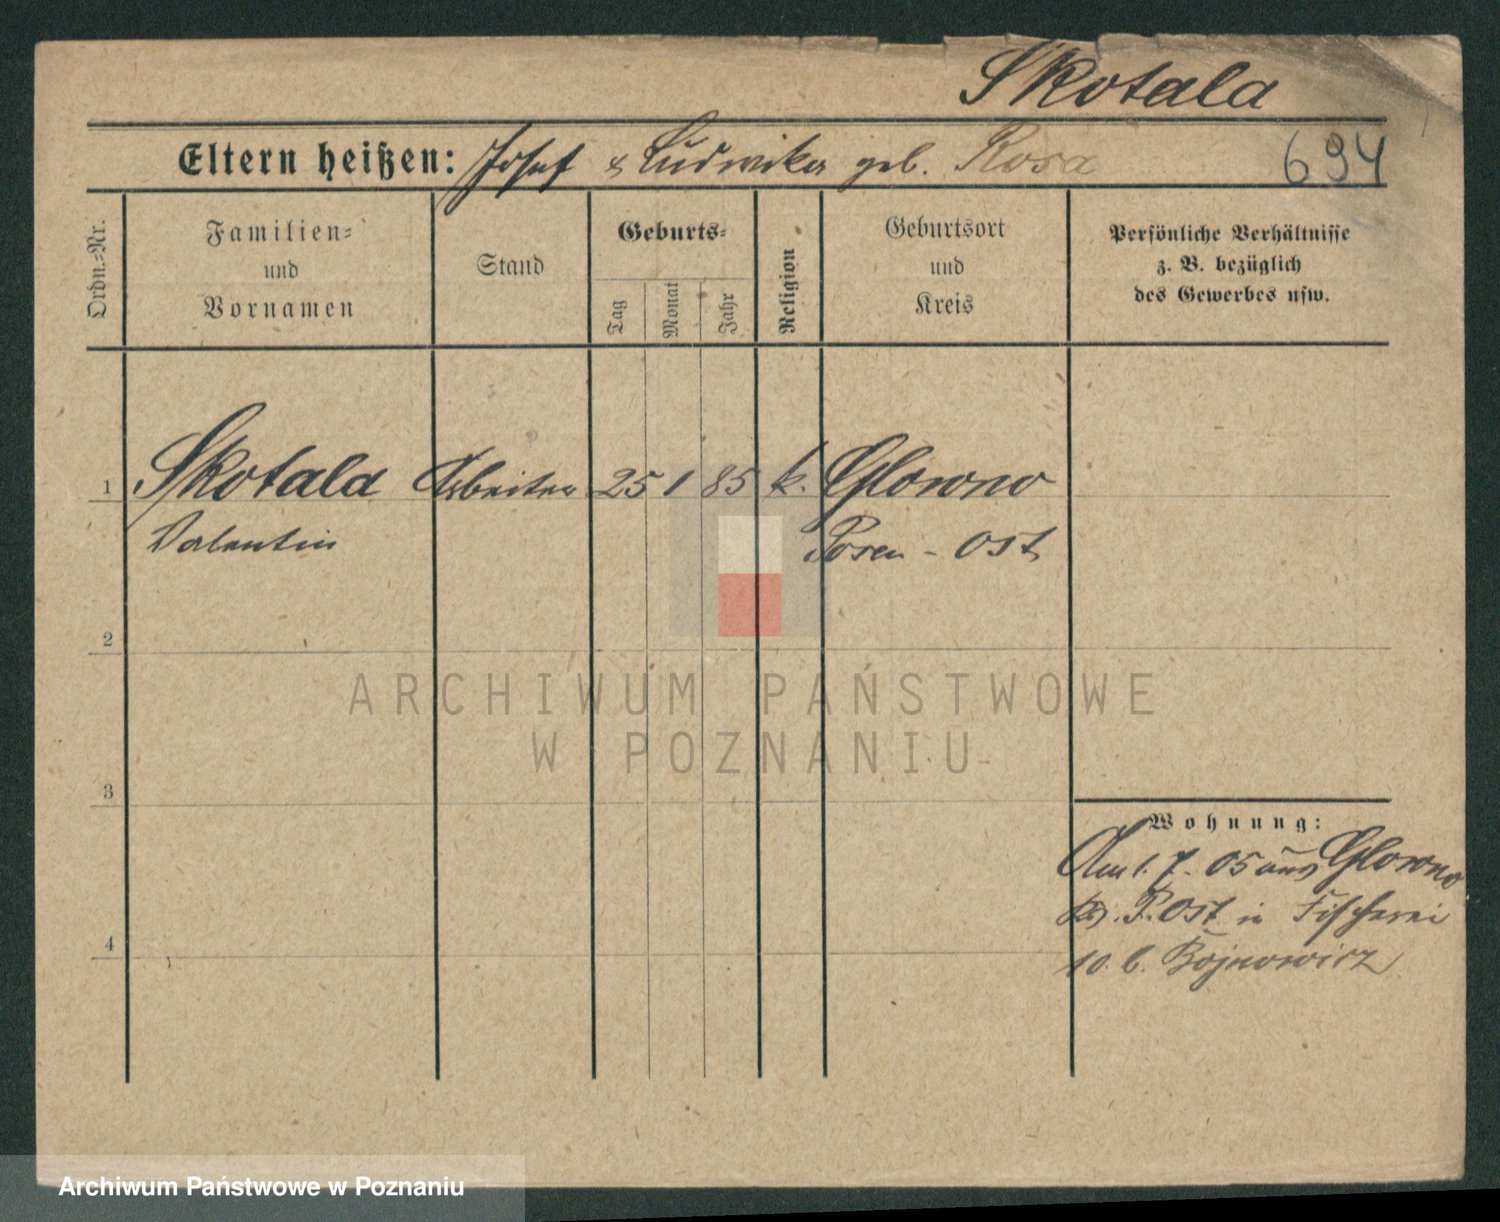 Skotala
Eltern heißen: Josef & Ludwika geb. Rosa
694
Ordn.=Nr.
Familien=
und
Vornamen
Stand
Geburts=
Tag
Monat
Jahr
Religion
Geburtsort
und
Kreis
Persönliche Verhältnisse
z. B. bezüglich
des Gewerbes usw.
1 Skotala Arbeiter 25 1 85 k. Glowno
Valentin Posen - Ost
2
ARCHIWUM PAŃSTWOWE
W POZNANIU
3
Wohnung:
Am 1.7.05 aus Glowno
P. Ost in Fischerei
4
10. b. Bojnowicz
Archiwum Państwowe w Poznaniu